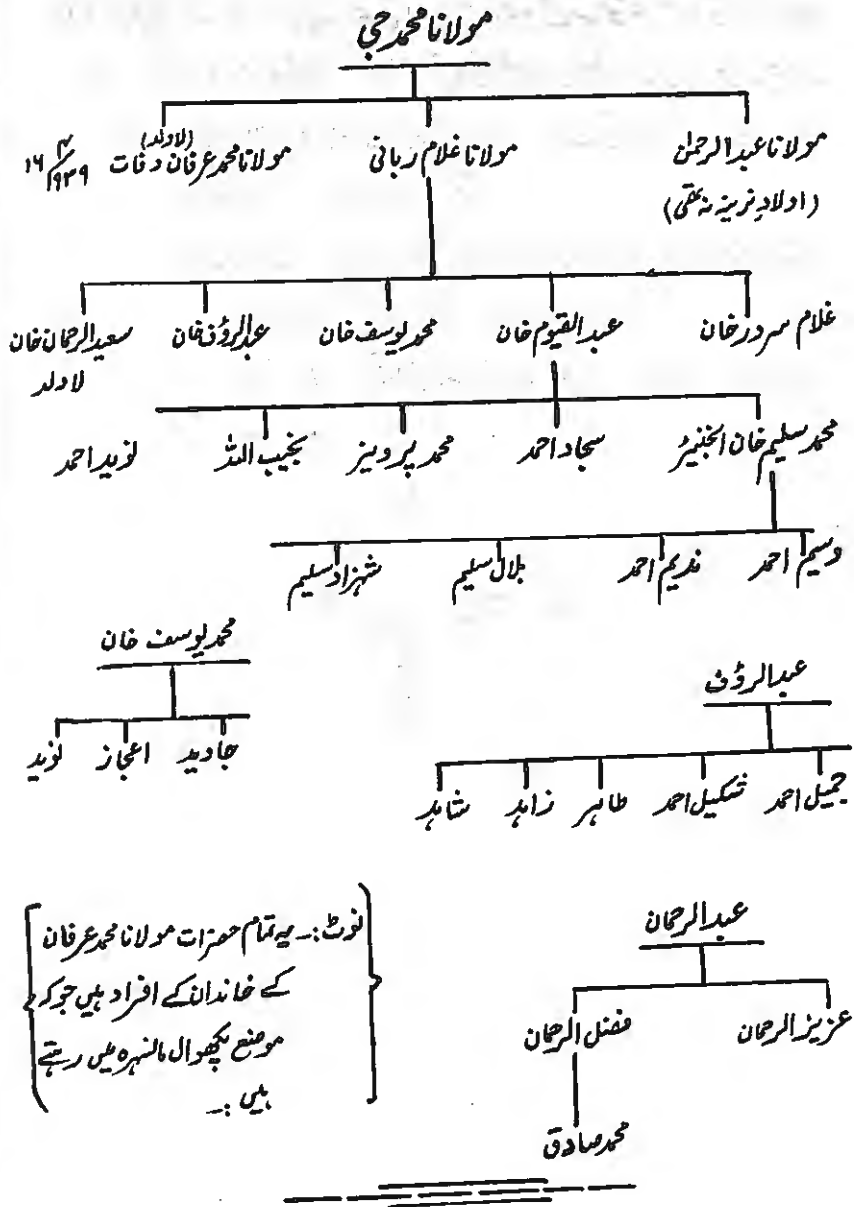 مولانا محمد حجی
مولانا عبدالرحمٰن مولانا غلام ربانی مولانا محمد عرفان (لاولد) وفات ۱۶/۴/۱۹۳۹
(اولادِ نرینہ نہ تھی)
غلام سرور خان عبدالقیوم خان محمد یوسف خان عبدالرؤف خان سعید الرحمان خان
لاولد
محمد سلیم خان انجنیئر سجاد احمد محمد پرویز نجیب اللہ نوید احمد
وسیم احمد ندیم احمد بلال سلیم شہزاد سلیم
محمد یوسف خان
جاوید اعجاز نوید
عبدالرؤف
جمیل احمد شکیل احمد طاہر زاہد شاہد
عبدالرحمان
عزیز الرحمان فضل الرحمان
محمد صادق
نوٹ:۔ یہ تمام حضرات مولانا محمد عرفان
کے خاندان کے افراد ہیں جو کہ
موضع پکھوال مانسہرہ میں رہتے
ہیں :۔